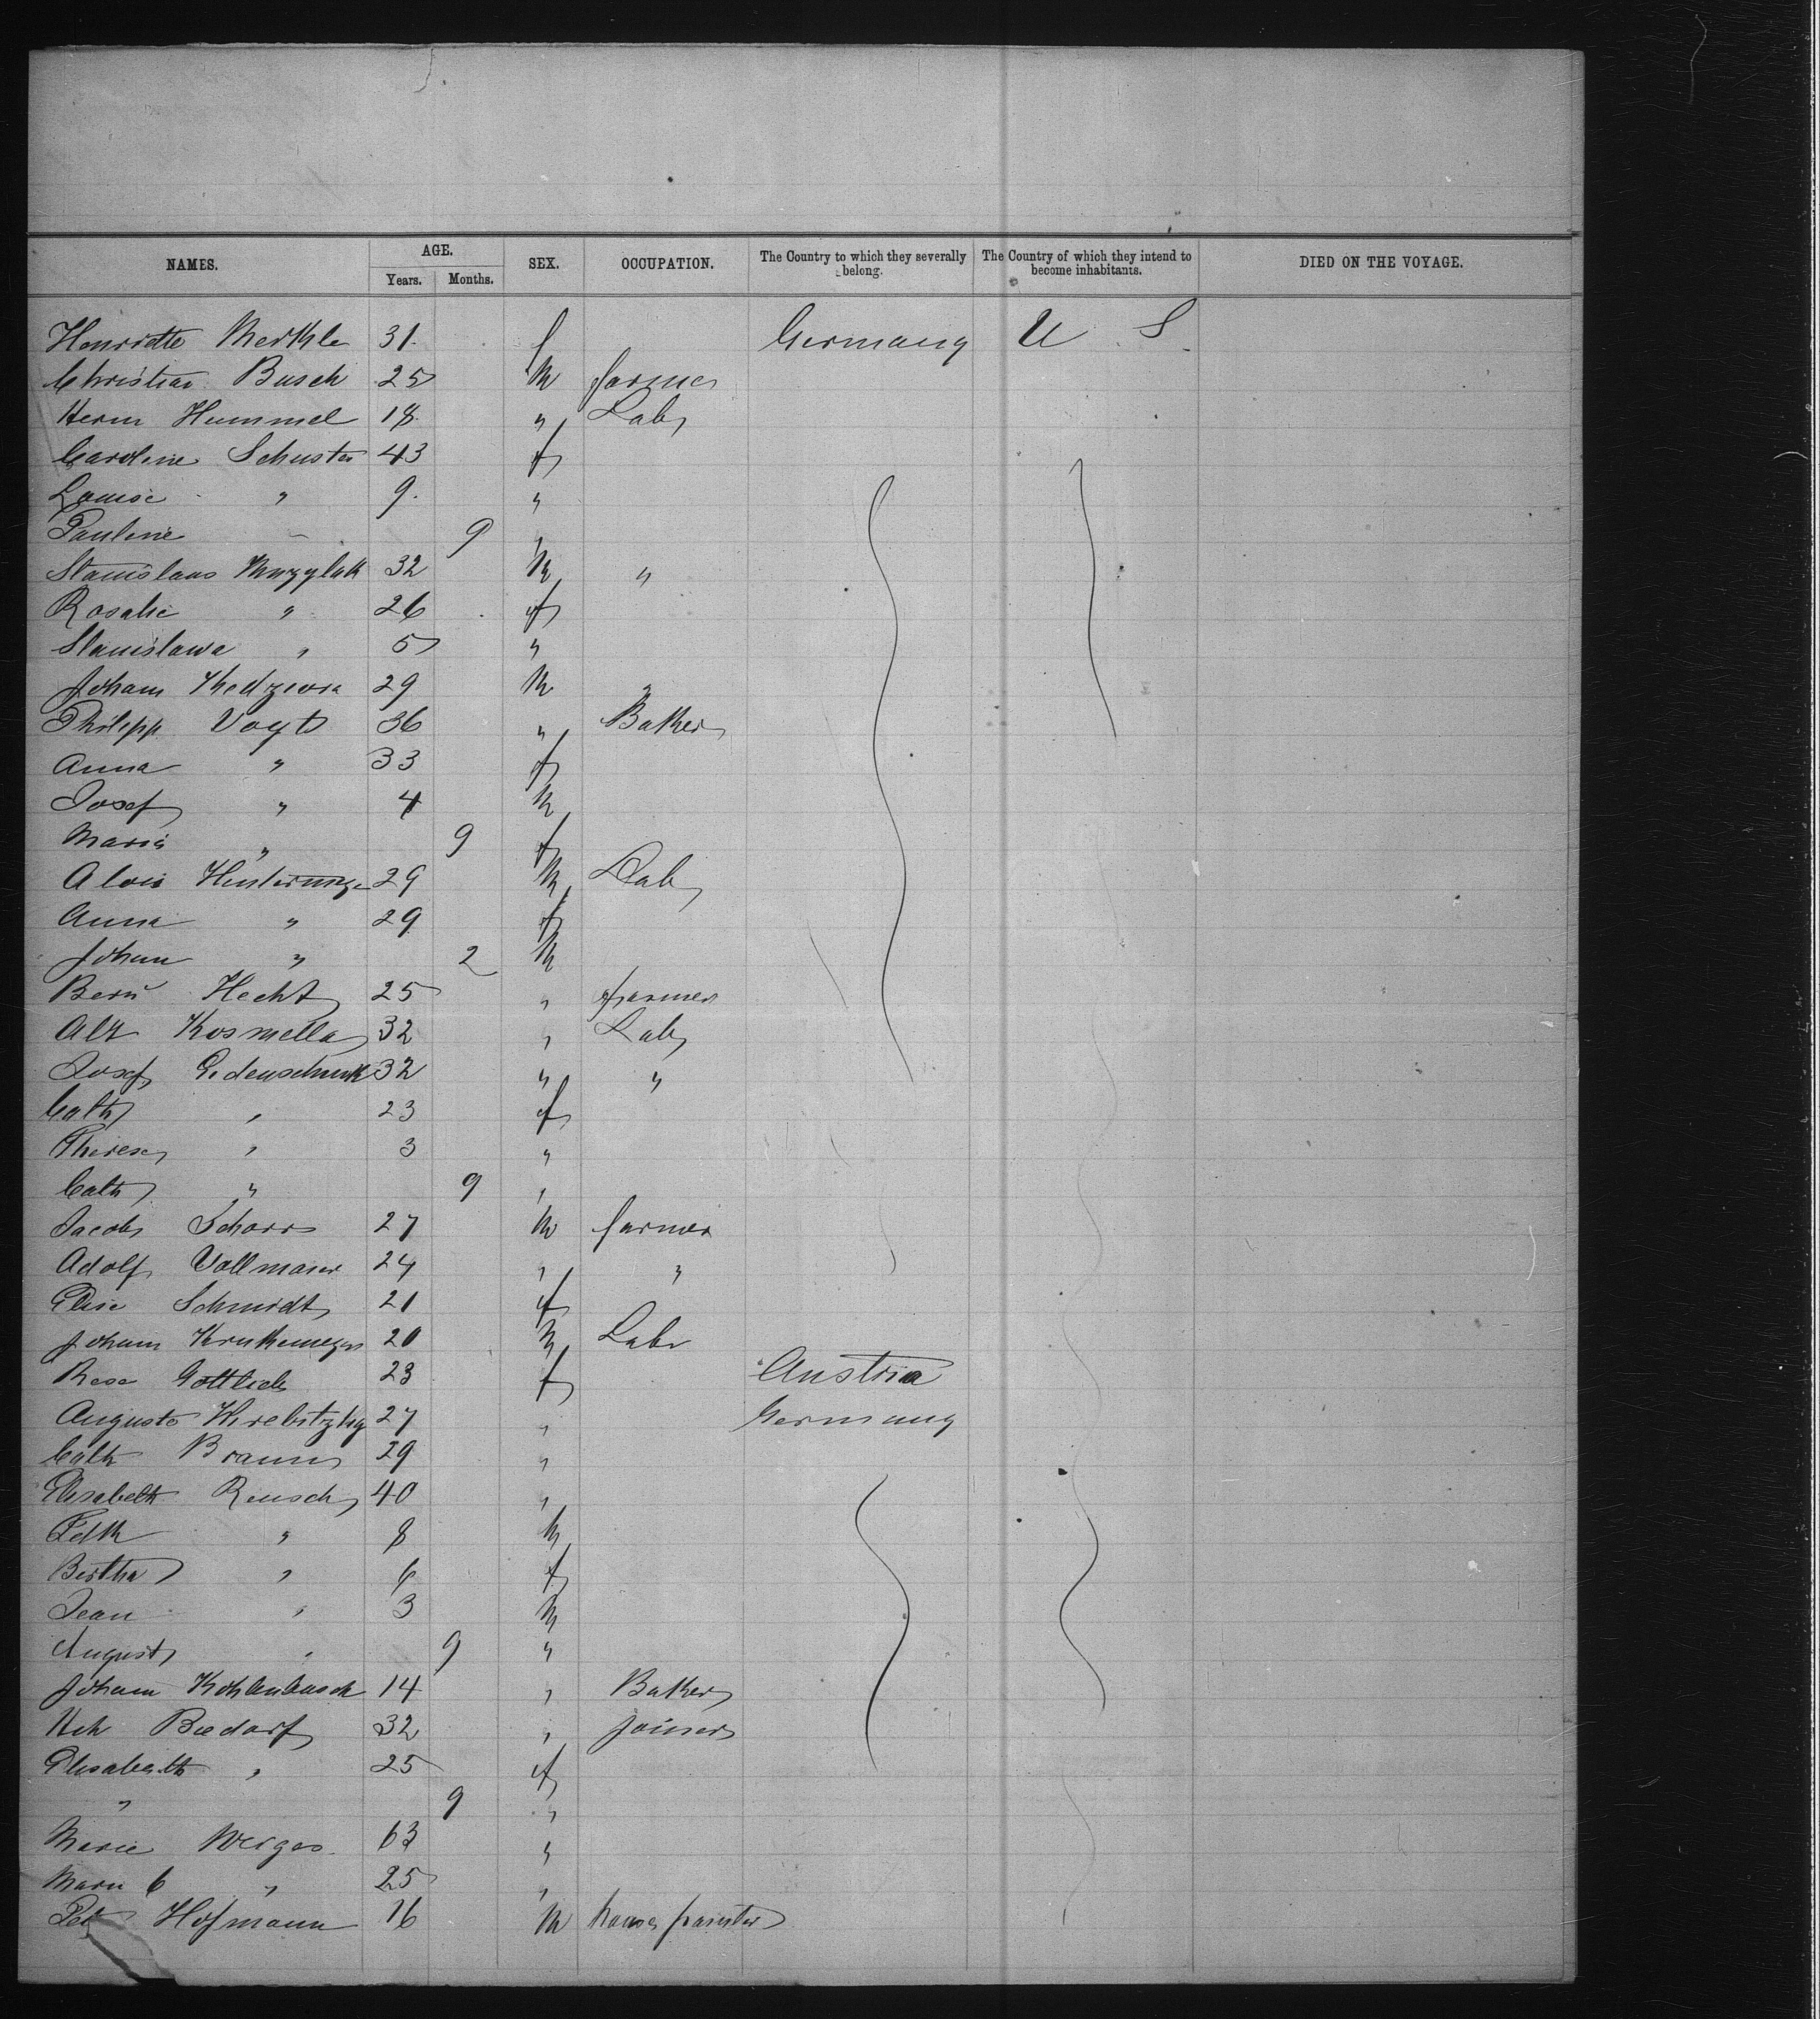 NAMES. AGE. SEX. OCCUPATION. The Country to which they severally belong. The Country of which they intend to become inhabitants. DIED ON THE VOYAGE.
Years. Months.
Henriette Merkle 31 f Germany U S
Christian Busch 25 m farmer
Herm Hummel 18 " Lab
Caroline Schuster 43 f
Louise " 9 "
Pauline 9 "
Stanislaus 32 m "
Rosalie " 26 f
Stanislawa " 5 "
Joham Kedziora 29 m "
Philipp Vogt 36 " Baker
Anna " 33 f
Josef " 4 m
Maria " 9 f
Alois 29 m Lab
Anna " 29 f
Johan " 2 m
Bern Hecht 25 " farmer
Alb Kosmella 32 " Lab
Josef 32 " "
Cath " 23 f
Therese " 3 "
Cath " 9 "
Jacob Schorr 27 m farmer
Adolf Vollmaier 24 " "
Elise Schmidt 21 f
Joham 20 m Labr
Rosa Gottlieb 23 f Austria
Auguste 27 " Germany
Cath Braun 29 "
Elisabeth Reusch 40 "
" 8 m
Bertha " 6 f
Jean " 3 m
August " 9 "
Joham Kohlenbusch 14 " Baker
Hch Bredorf 32 " Joiner
Elisabeth " 25 f
" 9 "
Marie Werges 63 "
Marie C " 25 "
Pet Hofmann 16 m house painter